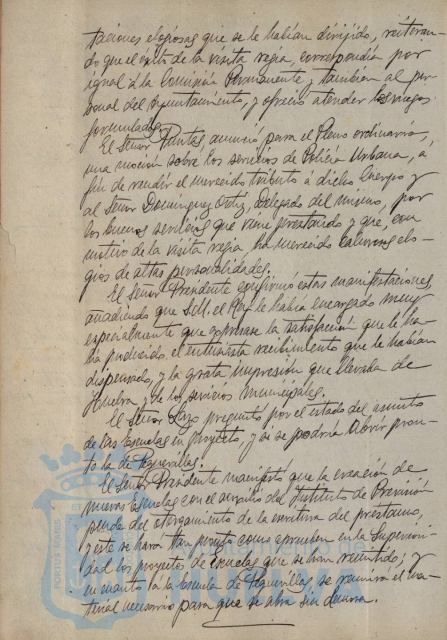 taciones elogiosas que se le habían dirigido, reiteran-
do que el éxito de la visita regia, correspondía por
igual á la Comisión Permanente, y también al per-
sonal del Ayuntamiento, y ofreció atender los ruegos
formulados.
El Señor Puntas, anunció para el Pleno ordinario,
una moción sobre los servicios de Policía Urbana, á
fin de rendir el merecido tributo á dicho Cuerpo y
al Señor Dominguez Ortiz, Delegado del mismo, por
los buenos servicios que viene prestando y que, con
motivo de la visita regia, ha merecido calurosos elo-
gios de altas personalidades.
El Señor Presidente confirmó estas manifestaciones,
añadiendo que S.M. el Rey le había encargado muy
especialmente que expresase la satisfacción que le ha-
bía producido el entusiasta recibimiento que le habían
dispensado, y la grata impresión que llevaba de
Huelva y de los servicios municipales.
El Señor Lazo preguntó por el estado del asunto
de las Escuelas en proyecto, y si se podría abrir pron-
to la de Peguerillas.
El Señor Presidente manifestó que la creación de
nuevas Escuelas con el auxilio del Instituto de Previsión
pende del otorgamiento de la escritura del préstamo,
y este se hará tan pronto como aprueben en la Superiori-
dad los proyectos de escuelas que se han remitido; y
en cuanto á la escuela de Peguerillas, se reunirá el ma-
terial necesario para que se abra sin demora.
PORTUS MARIS ET
Ayuntamiento de